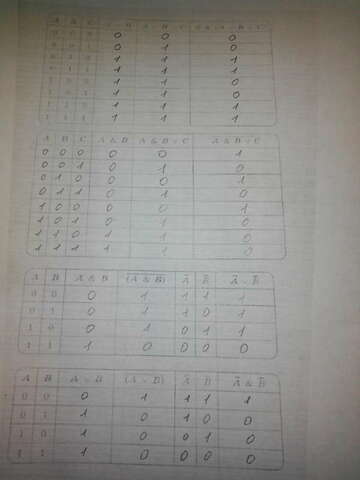 A B C A ∨ B A ∨ B ∨ C
0 0 0 0 0 0
0 0 1 0 1 0
0 1 0 1 1 1
0 1 1 1 1 1
1 0 0 1 1 0
1 0 1 1 1 0
1 1 0 1 1 1
1 1 1 1 1 1
A B C A & B A & B ∨ C
0 0 0 0 0 1
0 0 1 0 1 0
0 1 0 0 0 1
0 1 1 0 1 0
1 0 0 0 0 1
1 0 1 0 1 0
1 1 0 1 1 0
1 1 1 1 1 0
A B A & B (A & B) Ā B̄ Ā ∨ B̄
0 0 0 1 1 1 1
0 1 0 1 1 0 1
1 0 0 1 0 1 1
1 1 1 0 0 0 0
A B A ∨ B (A ∨ B) Ā B̄ Ā & B̄
0 0 0 1 1 1 1
0 1 1 0 1 0 0
1 0 1 0 0 1 0
1 1 1 0 0 0 0